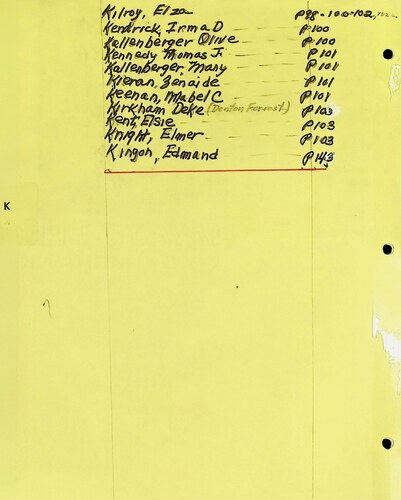 Kilroy, Elza p98-100-102,
Kendrick, Irma D p100
Kallenberger Olive p100
Kennedy Thomas J. p101
Kallenberger, Mary p101
Kieran, Zenaide p101
Keenan, Mabel C p101
Kirkham Deke (Denton Forrest) p103
Kent, Elsie p103
Knight, Elmer p103
Kingon, Edmand p143
K